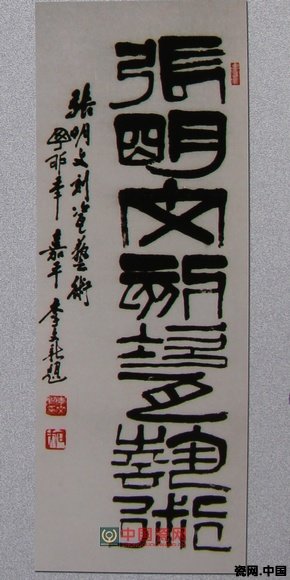 張明文刻瓷藝術
張明文刻瓷藝術
年嘉平 李文新題
中国瓷网
瓷网.中国